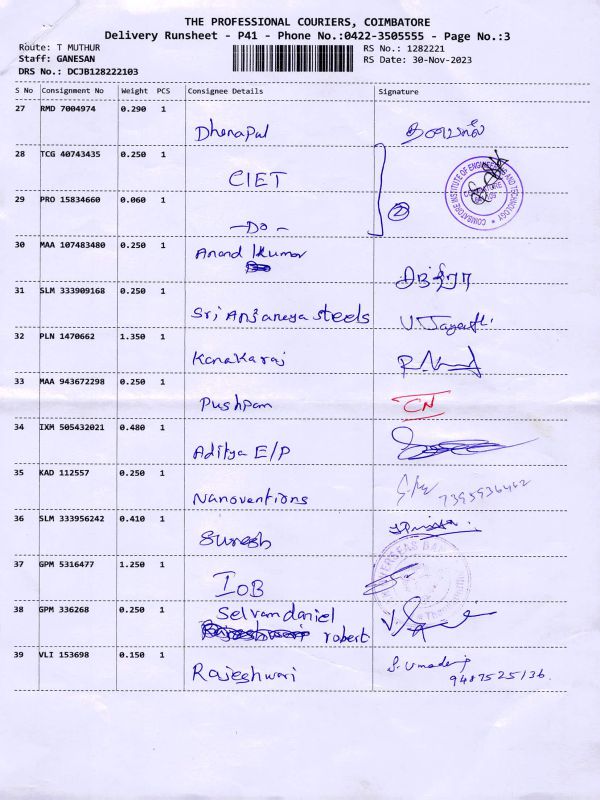 THE PROFESSIONAL COURIERS, COIMBATORE
Delivery Runsheet - P41 - Phone No.:0422-3505555 - Page No.:3
Route: T MUTHUR
RS No.: 1282221
Staff: GANESAN
RS Date: 30-Nov-2023
DRS No.: DCJB128222103
S No Consignment No Weight PCS Consignee Details Signature
27 RMD 7004974 0.290 1
Dhanapal
28 TCG 40743435 0.250 1
CIET
COIMBATORE INSTITUTE OF ENGINEERING AND TECHNOLOGY
29 PRO 15834660 0.060 1
-Do- 2
30 MAA 107483480 0.250 1
Anand kumar
31 SLM 333909168 0.250 1
Sri Anjaneya steels
32 PLN 1470662 1.350 1
Kanakaraj
33 MAA 943672298 0.250 1
Pushpam CN
34 IXM 505432021 0.480 1
Aditya E/P
35 KAD 112557 0.250 1
Nanoventions 7395936462
36 SLM 333956242 0.410 1
Suresh
37 GPM 5316477 1.250 1
IOB
OVERSEAS BANK
38 GPM 336268 0.250 1
Selvamdaniel
robert
39 VLI 153698 0.150 1
Rajeshwari
9487525136